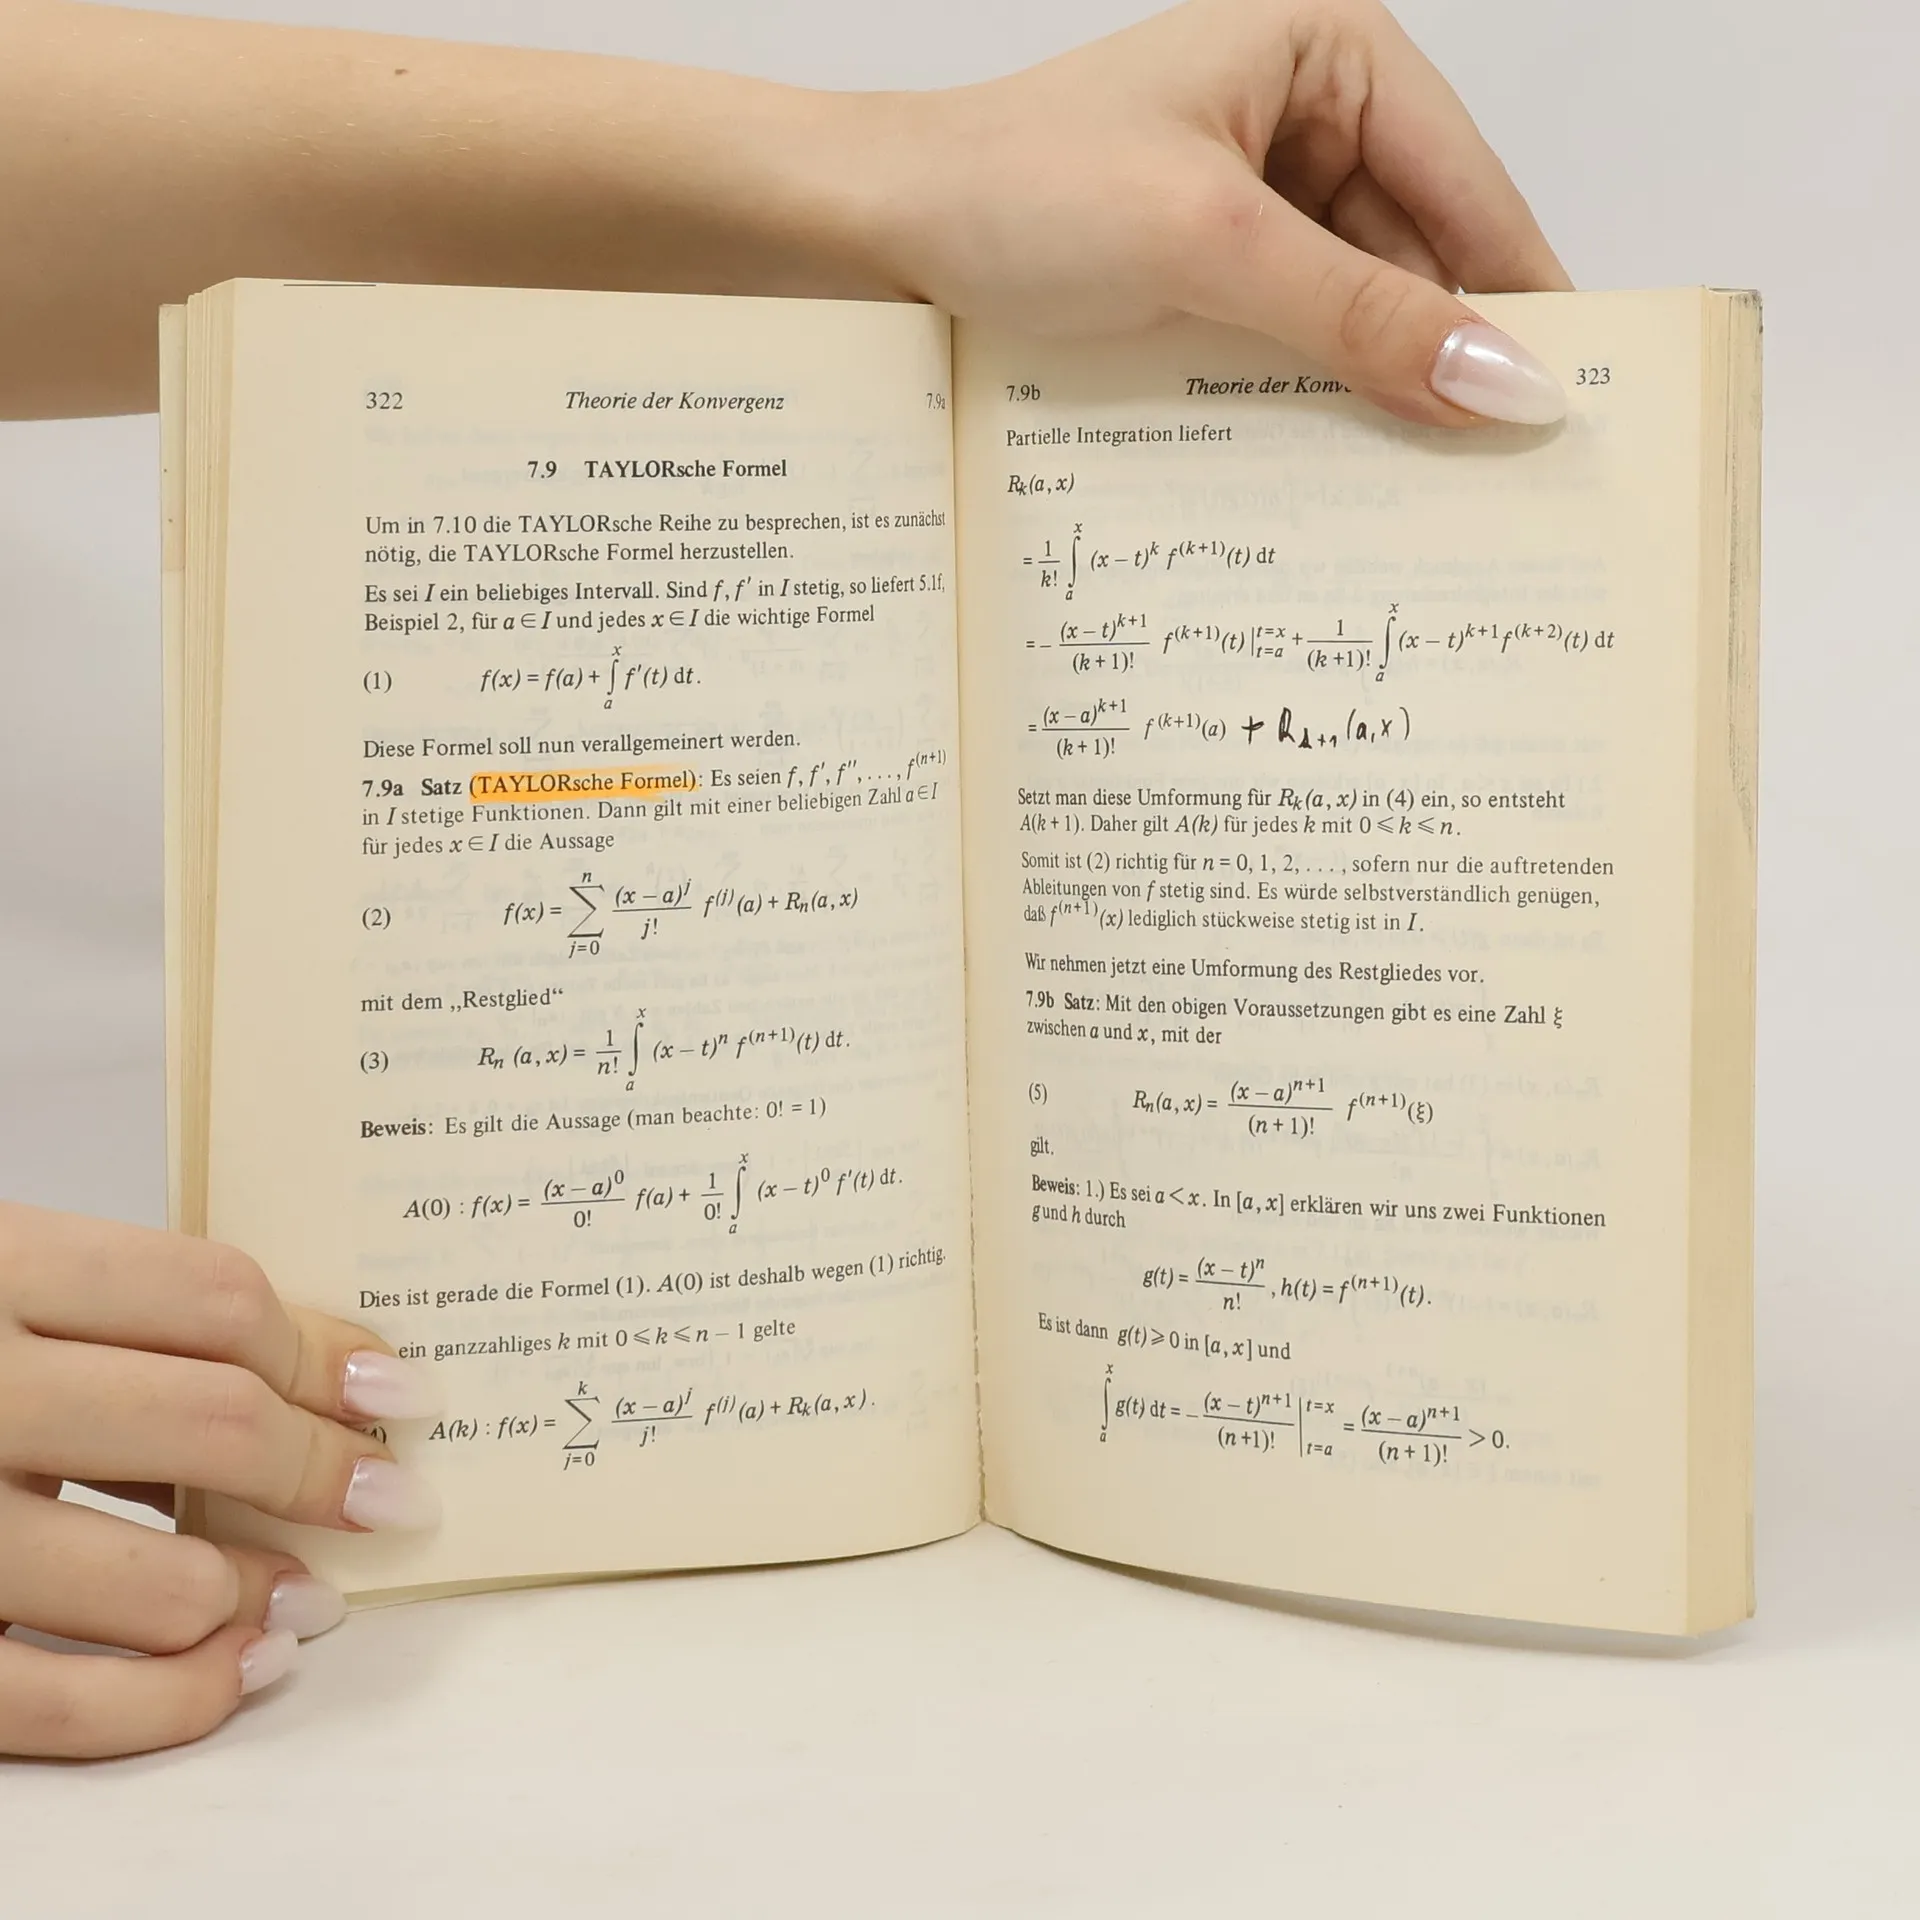 322 Theorie der Konvergenz 7.9a
7.9 TAYLORsche Formel
Um in 7.10 die TAYLORsche Reihe zu besprechen, ist es zunächst
nötig, die TAYLORsche Formel herzustellen.
Es sei I ein beliebiges Intervall. Sind f, f′ in I stetig, so liefert 5.1f,
Beispiel 2, für a ∈ I und jedes x ∈ I die wichtige Formel
(1) f(x) = f(a) + ∫_a^x f′(t) dt.
Diese Formel soll nun verallgemeinert werden.
7.9a Satz (TAYLORsche Formel): Es seien f, f′, f″, . . . , f^(n+1)
in I stetige Funktionen. Dann gilt mit einer beliebigen Zahl a ∈ I
für jedes x ∈ I die Aussage
(2) f(x) = ∑_{j=0}^n (x – a)^j / j! f^(j)(a) + R_n(a, x)
mit dem „Restglied“
(3) R_n (a, x) = 1/n! ∫_a^x (x – t)^n f^(n+1)(t) dt.
Beweis: Es gilt die Aussage (man beachte: 0! = 1)
A(0) : f(x) = (x – a)^0 / 0! f(a) + 1/0! ∫_a^x (x – t)^0 f′(t) dt.
Dies ist gerade die Formel (1). A(0) ist deshalb wegen (1) richtig.
ein ganzzahliges k mit 0 ⩽ k ⩽ n – 1 gelte
A(k) : f(x) = ∑_{j=0}^k (x – a)^j / j! f^(j)(a) + R_k(a, x).
7.9b Theorie der Konv 323
Partielle Integration liefert
R_k(a, x)
= 1/k! ∫_a^x (x – t)^k f^(k+1)(t) dt
= – (x – t)^{k+1} / (k + 1)! f^(k+1)(t) |_{t=a}^{t=x} + 1/(k+1)! ∫_a^x (x – t)^{k+1} f^(k+2)(t) dt
= (x – a)^{k+1} / (k + 1)! f^(k+1)(a) + R_{k+1}(a, x)
Setzt man diese Umformung für R_k(a, x) in (4) ein, so entsteht
A(k + 1). Daher gilt A(k) für jedes k mit 0 ⩽ k ⩽ n.
Somit ist (2) richtig für n = 0, 1, 2, . . . , sofern nur die auftretenden
Ableitungen von f stetig sind. Es würde selbstverständlich genügen,
daß f^(n+1)(x) lediglich stückweise stetig ist in I.
Wir nehmen jetzt eine Umformung des Restgliedes vor.
7.9b Satz: Mit den obigen Voraussetzungen gibt es eine Zahl ξ
zwischen a und x, mit der
(5) R_n(a, x) = (x – a)^{n+1} / (n + 1)! f^(n+1)(ξ)
gilt.
Beweis: 1.) Es sei a < x. In [a, x] erklären wir uns zwei Funktionen
g und h durch
g(t) = (x – t)^n / n! , h(t) = f^(n+1)(t).
Es ist dann g(t) ⩾ 0 in [a, x] und
∫_a^x g(t) dt = – (x – t)^{n+1} / (n+1)! |_{t=a}^{t=x} = (x – a)^{n+1} / (n + 1)! > 0.